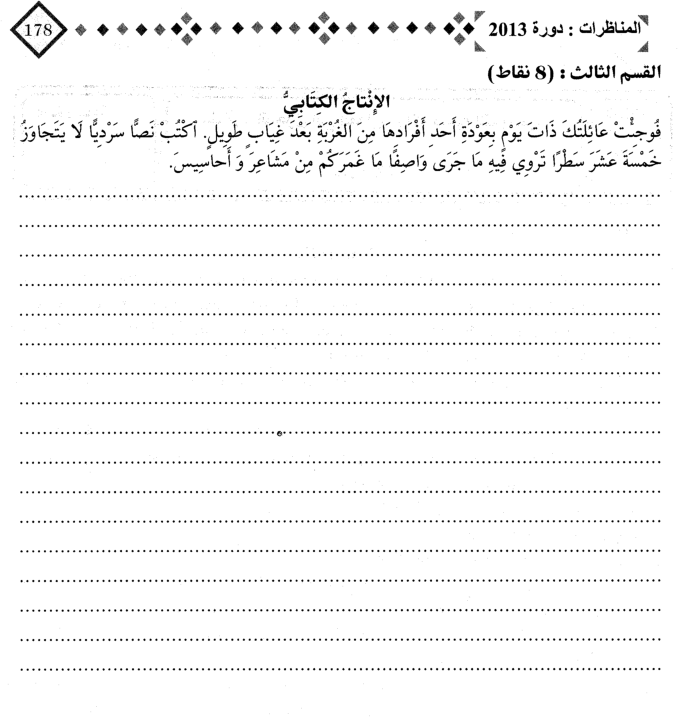 المناظرات : دورة 2013
178
القسم الثالث : (8 نقاط)
الإِنْتاجُ الكِتَابيُّ
فُوجِئْتْ عَائِلَتُكَ ذَاتَ يَوْمٍ بِعَوْدَةِ أَحَدِ أَفْرَادِهَا مِنَ الغُرْبَةِ بَعْدَ غِيَابٍ طَوِيلٍ. اَكْتُبْ نَصًّا سَرْدِيًّا لَا يَتَجَاوَزُ
خَمْسَةَ عَشَرَ سَطْرًا تَرْوِي فِيهِ مَا جَرَى وَاصِفًا مَا غَمَرَكُمْ مِنْ مَشَاعِرَ وَ أَحاسِيسَ.